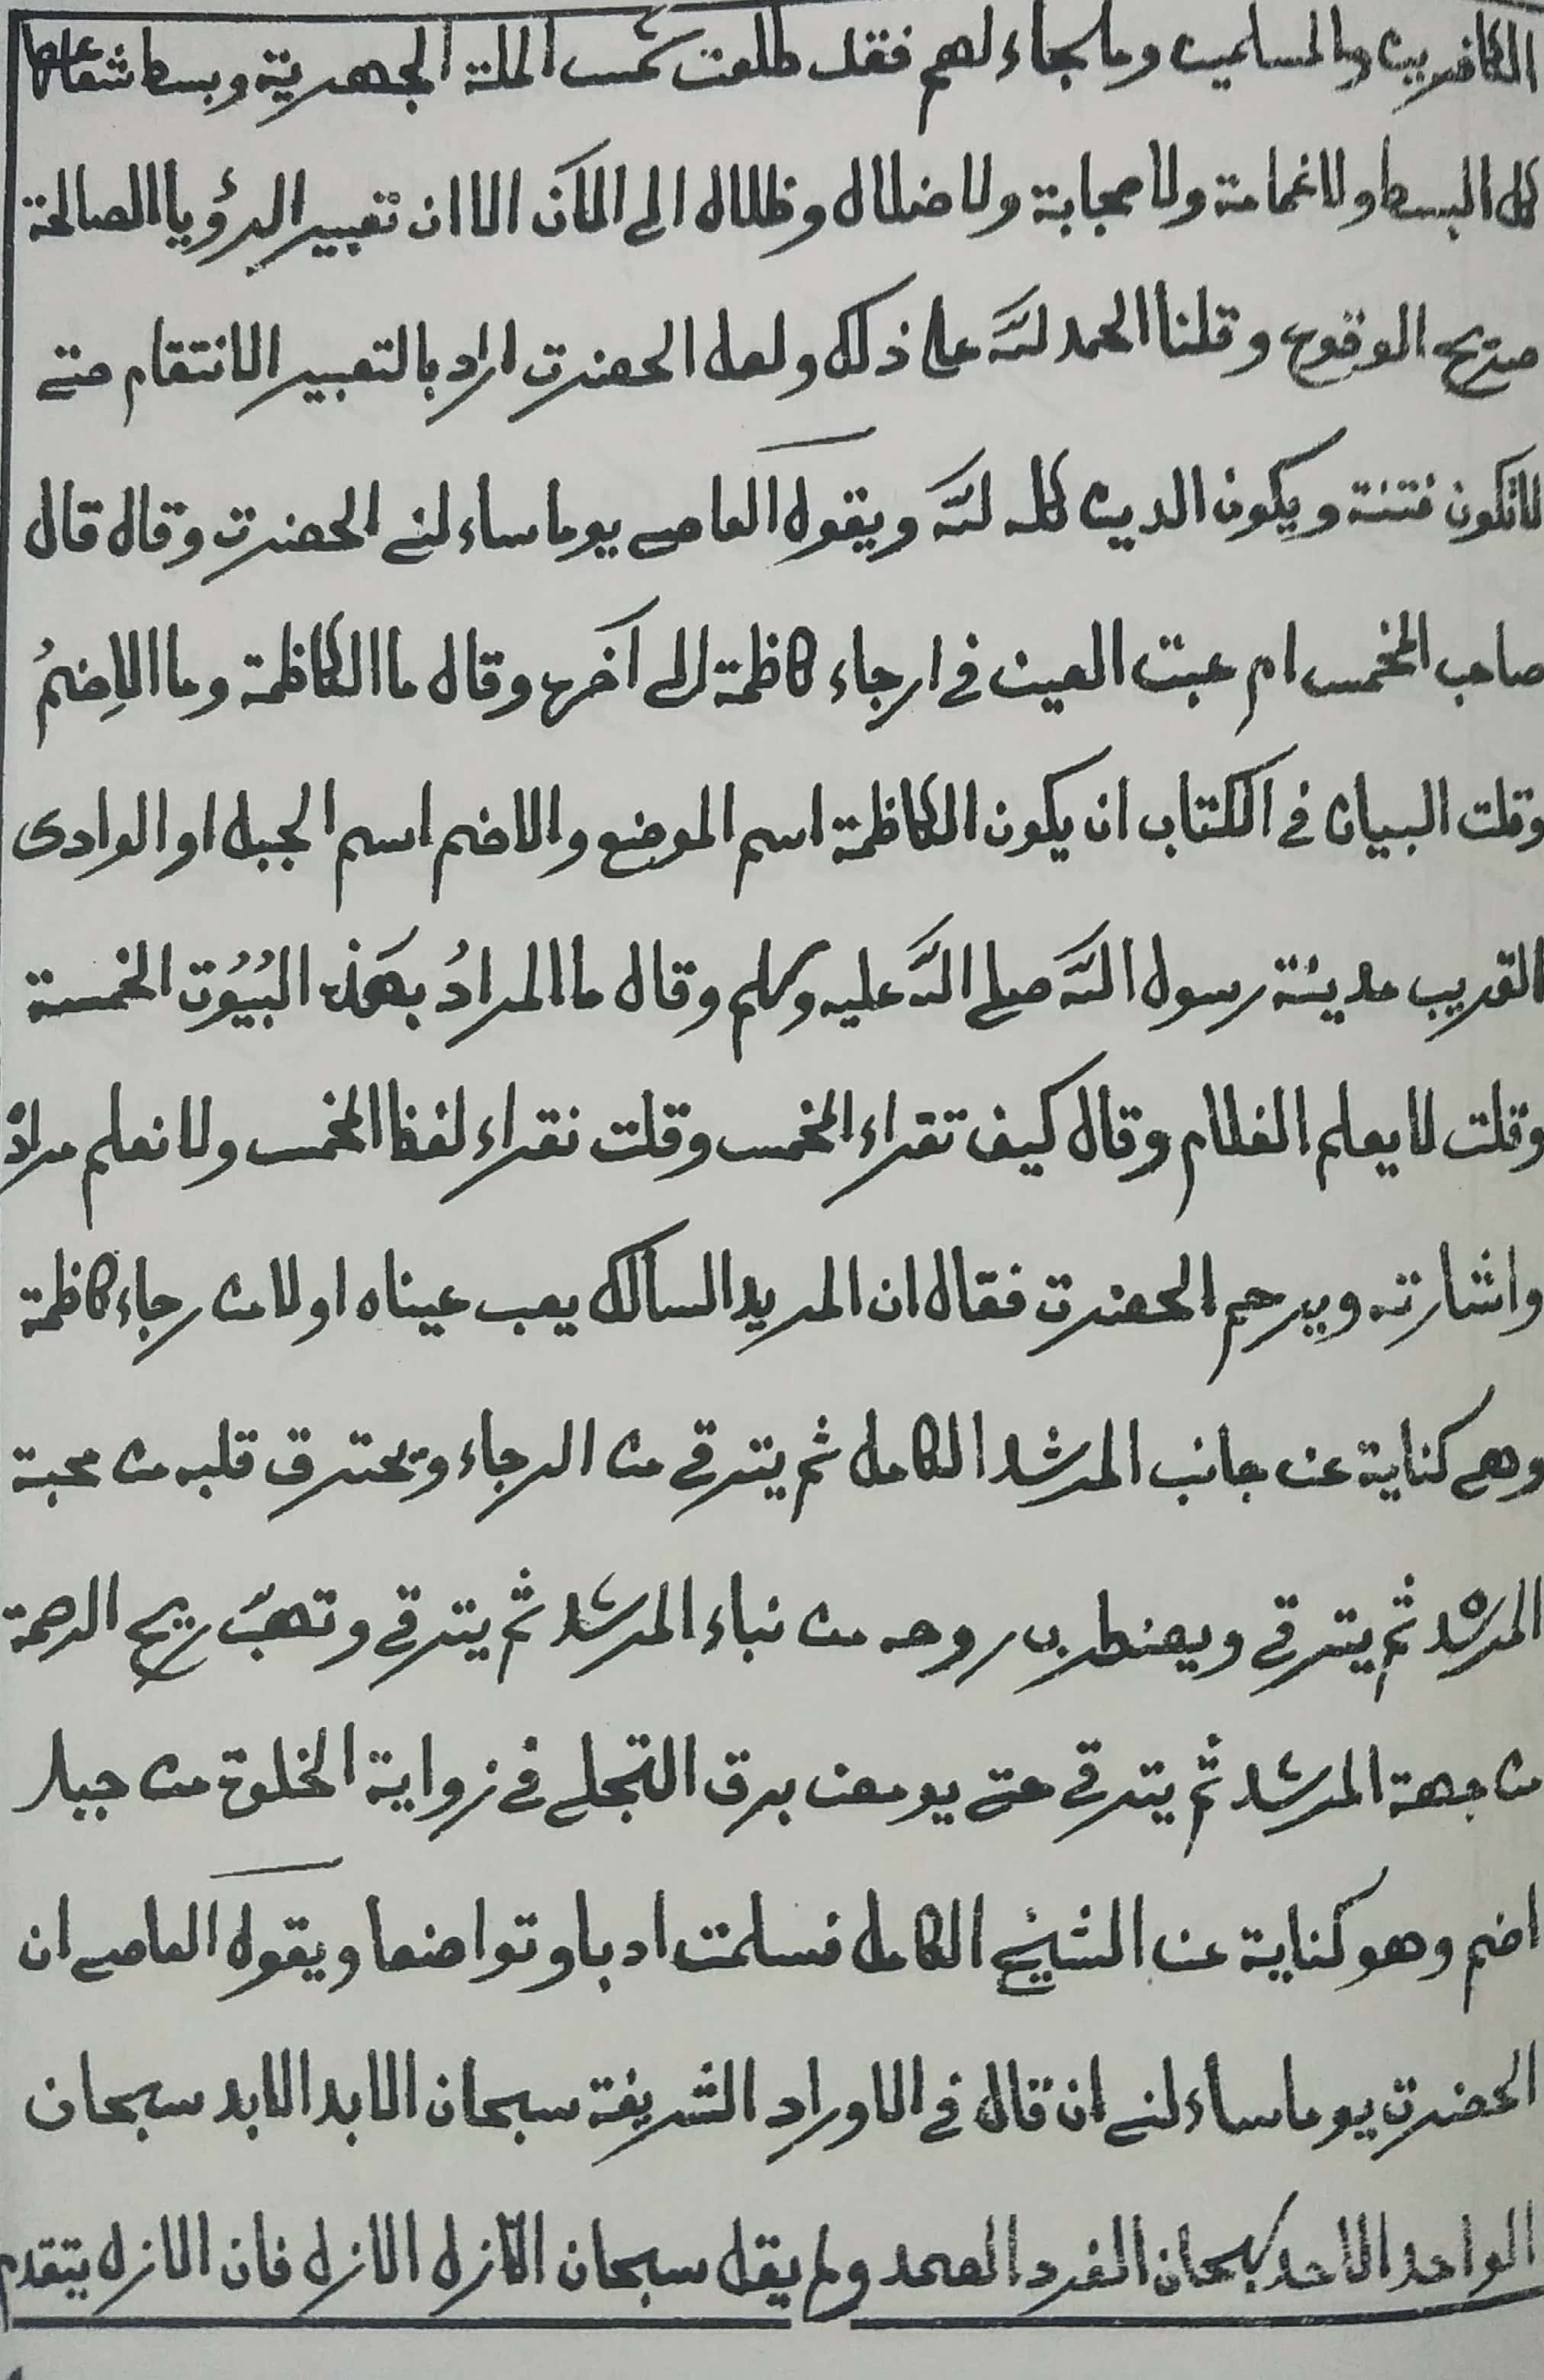 الكافرين والمسلمين وملجاء لهم فقد طلعت شمس الملة الجهرية وبسط شعاعها
كل البسط ولا غمامة ولا حجابة ولا ضلال وظلال الى الآن الا ان تعبير الرؤيا الصالحة
صريح الوقوع وقلنا الحمد لله على ذلك ولعل الحضرت اراد بالتعبير الانتقام حتے
لا تكون فتنة ويكون الدين كله لله ويقول العاصے يوما ساء لنے الحضرت وقال قال
صاحب المخمس ام عبت العين فے ارجاء كاظمة الى آخره وقال ما الكاظمة وما الاِضمُ
وقلت البيان فے الكتاب ان يكون الكاظمة اسم الموضع والاضم اسم الجبل او الوادى
القريب مدينة رسول الله صلے الله عليه وسلم وقال ما المرادُ بهَذه البُيُوت الخمسة
وقلت لا يعلم الغلام وقال كيف تقراء المخمس وقلت نقراء لفظ المخمس ولا نعلم مراده
واشارته ويرحم الحضرت فقال ان المريد السالك يعب عيناه اولا من رجاء كاظمة
وهے كناية عن جانب المرشد الكامل ثم يترقے من الرجاء ويحترق قلبه من محبة
المرشد ثم يترقے ويضطرب روحه من نباء المرشد ثم يترقے وتهبّ ريح الرحمة
من جهة المرشد ثم يترقے حتے يومض برق التجلے فے زواية الخلوة من جبل
اضم وهو كناية عن الشيخ الكامل فسلمت ادبا وتواضعا ويقول العاصے ان
الحضرت يوما ساء لنے ان قال فے الاوراد الشريفة سبحان الابد الابد سبحان
الواحد الاحد سبحان الفرد الصمد ولم يقل سبحان الازل الازل فان الازل يتقدم